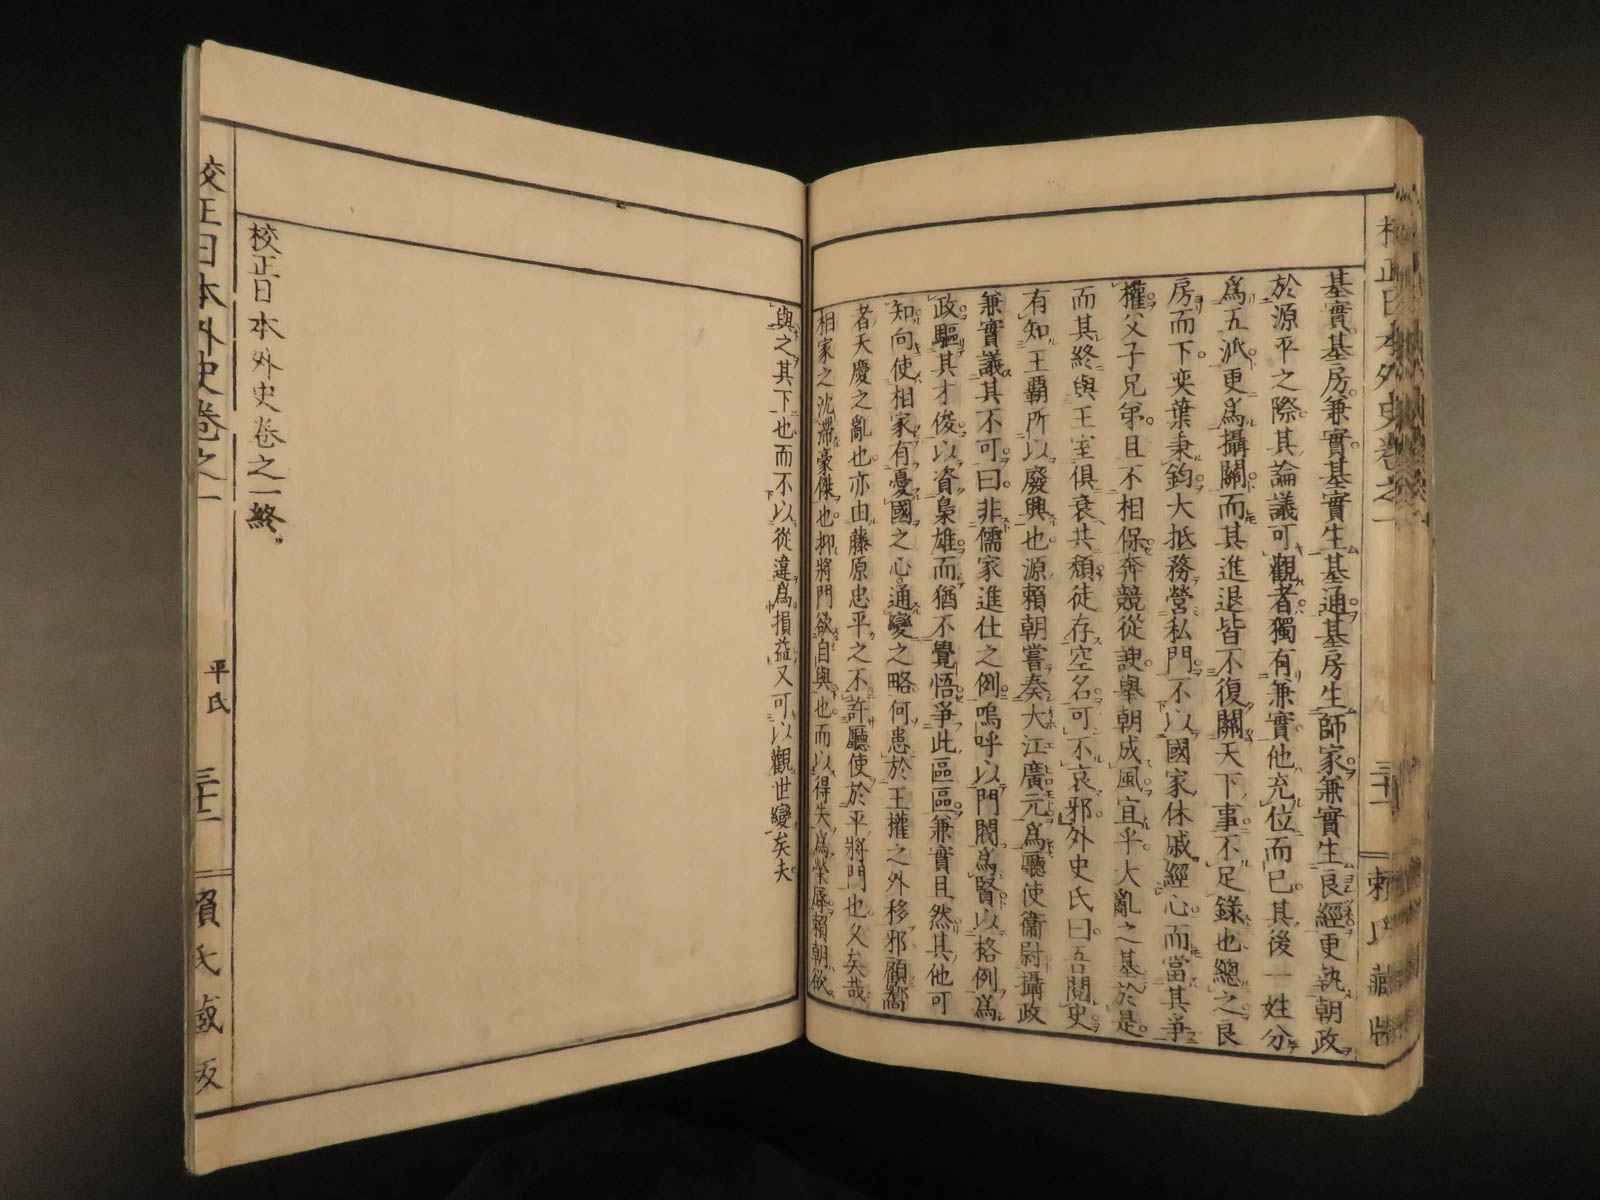 基實基房兼實基實生基通基房生師家兼實生良經更執朝政
於源平之際其論議可觀者獨有兼實他充位而已其後一姓分
爲五派更爲攝關而其進退皆不復關天下事不足錄也總之良
房而下奕葉秉鈞大抵務營私門不以國家休戚經心而當其爭
權父子兄弟且不相保奔競從諛擧朝成風宜乎大亂之基於是
而其終與王室俱衰共頽徒存空名可不哀邪外史氏曰吾閱史
有知王霸所以廢興也源賴朝嘗奏大江廣元爲廳使衞尉攝政
兼實議其不可曰非儒家進仕之例嗚呼以門閥爲賢以格例爲
政驅其才俊以資梟雄而猶不覺悟爭此區區兼實且然其他可
知向使相家有憂國之心通變之略何患於王權之外移邪顧嚮
者天慶之亂也亦由藤原忠平之不許廳使於平將門也久矣哉
相家之沈滯豪傑也抑將門欲自與也而以得失爲榮辱賴朝欲
與之其下也而不以從違爲損益又可以觀世變矣夫
校正日本外史卷之一終
校正日本外史卷之一
平氏
三十二
賴氏藏版